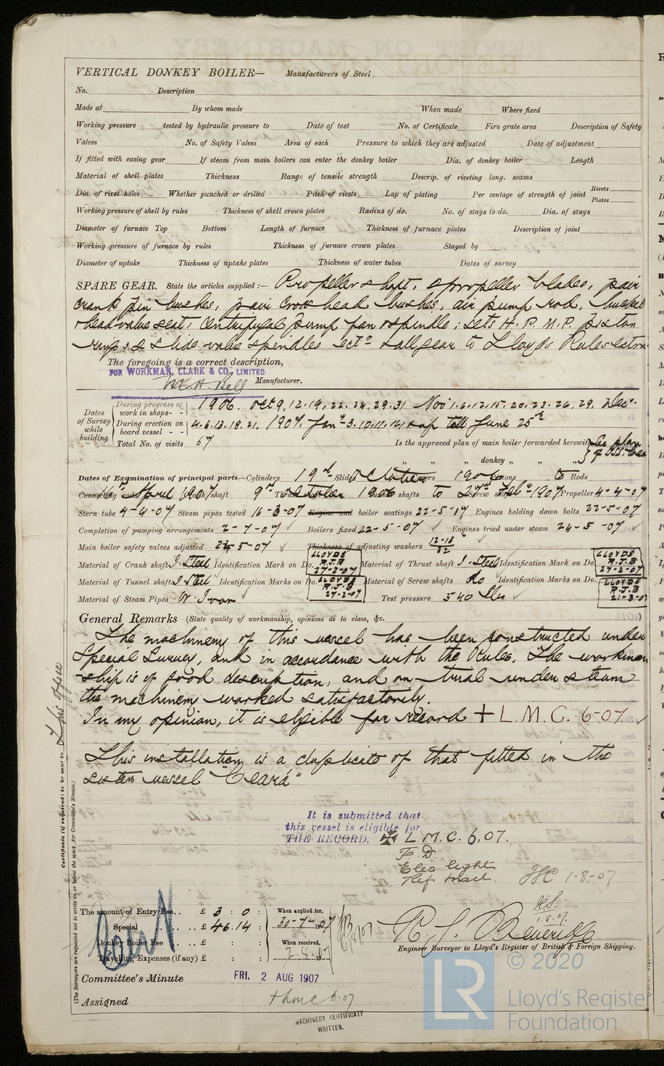 VERTICAL DONKEY BOILER— Manufacturers of Steel
No. Description
Made at By whom made When made Where fixed
Working pressure tested by hydraulic pressure to Date of test No. of Certificate Fire grate area Description of Safety
Valves No. of Safety Valves Area of each Pressure to which they are adjusted Date of adjustment
If fitted with easing gear If steam from main boilers can enter the donkey boiler Dia. of donkey boiler Length
Material of shell plates Thickness Range of tensile strength Descrip. of riveting long. seams
Dia. of rivet holes Whether punched or drilled Pitch of rivets Lap of plating Per centage of strength of joint Rivets Plates
Working pressure of shell by rules Thickness of shell crown plates Radius of do. No. of stays to do. Dia. of stays
Diameter of furnace Top Bottom Length of furnace Thickness of furnace plates Description of joint
Working pressure of furnace by rules Thickness of furnace crown plates Stayed by
Diameter of uptake Thickness of uptake plates Thickness of water tubes Dates of survey
SPARE GEAR. State the articles supplied:— Propeller shaft, propeller blades, pair
crank pin bushes, pair cross head bushes, air pump rod, bucket
head valve seat, centrifugal pump fan & spindle; sets H.P. M.P. piston
rings & slide valve spindles to Lloyds Rules
The foregoing is a correct description,
FOR WORKMAN, CLARK & CO., LIMITED
Bell Manufacturer.
Dates of Survey while building
During progress of work in shops - - 1906. Oct 9, 12, 19, 22, 24, 29, 31 Nov 1. 6. 12. 15. 20. 23. 26. 29. Dec.
During erection on board vessel - - - 4. 6. 13. 18. 21. 1907. Jan 3. 10. 11. 14 & up till June 25th
Total No. of visits 67 Is the approved plan of main boiler forwarded herewith See plan
" " " donkey " " "
Dates of Examination of principal parts—Cylinders Slides Covers Pistons Rods
Connecting rods April 1907 Crank shaft 9th Thrust October 1906 shafts to Screw 1907 Propeller 4-4-07
Stern tube 4-4-07 Steam pipes tested 16-3-07 Engine and boiler seatings 22-5-07 Engines holding down bolts 22-5-07
Completion of pumping arrangements 2-7-07 Boilers fixed 22-5-07 Engines tried under steam 24-5-07
Main boiler safety valves adjusted 24-5-07 Thickness of adjusting washers
Material of Crank shaft I. Steel Identification Mark on Do. LLOYDS R.J.B 27-2-07 Material of Thrust shaft I. Steel Identification Mark on Do. LLOYDS R.J.B 27-2-07
Material of Tunnel shafts I. Steel Identification Marks on Do. LLOYDS R.J.B 27-2-07 Material of Screw shafts Do Identification Marks on Do. LLOYDS R.J.B 21-3-07
Material of Steam Pipes W. Iron Test pressure 540 lbs
General Remarks (State quality of workmanship, opinions as to class, &c.
The machinery of this vessel has been constructed under
Special Survey, and in accordance with the Rules. The workman
-ship is of good description, and on trial under steam
the machinery worked satisfactorily.
In my opinion, it is eligible for record + L.M.C. 6-07
This installation is a duplicate of that fitted in the
sister vessel "Ceará"
It is submitted that
this vessel is eligible for
THE RECORD. + L.M.C. 6.07.
F.D.
Elec light
Ref. mach. 1-8-07
Certificate (if required) to be sent to This office
(The Surveyors are requested not to write on or below the space for Committee's Minute.)
The amount of Entry Fee.. £ 3 : 0 : When applied for,
Special £ 46.14 : 30-7-07
Donkey Boiler Fee £ When received,
Travelling Expenses (if any) £
R. J. Beveridge
Engineer Surveyor to Lloyd's Register of British & Foreign Shipping.
Committee's Minute FRI. 2 AUG 1907
Assigned + L.M.C 6.07
MACHINERY CERTIFICATE
WRITTEN.
© 2020
LR Lloyd's Register
Foundation